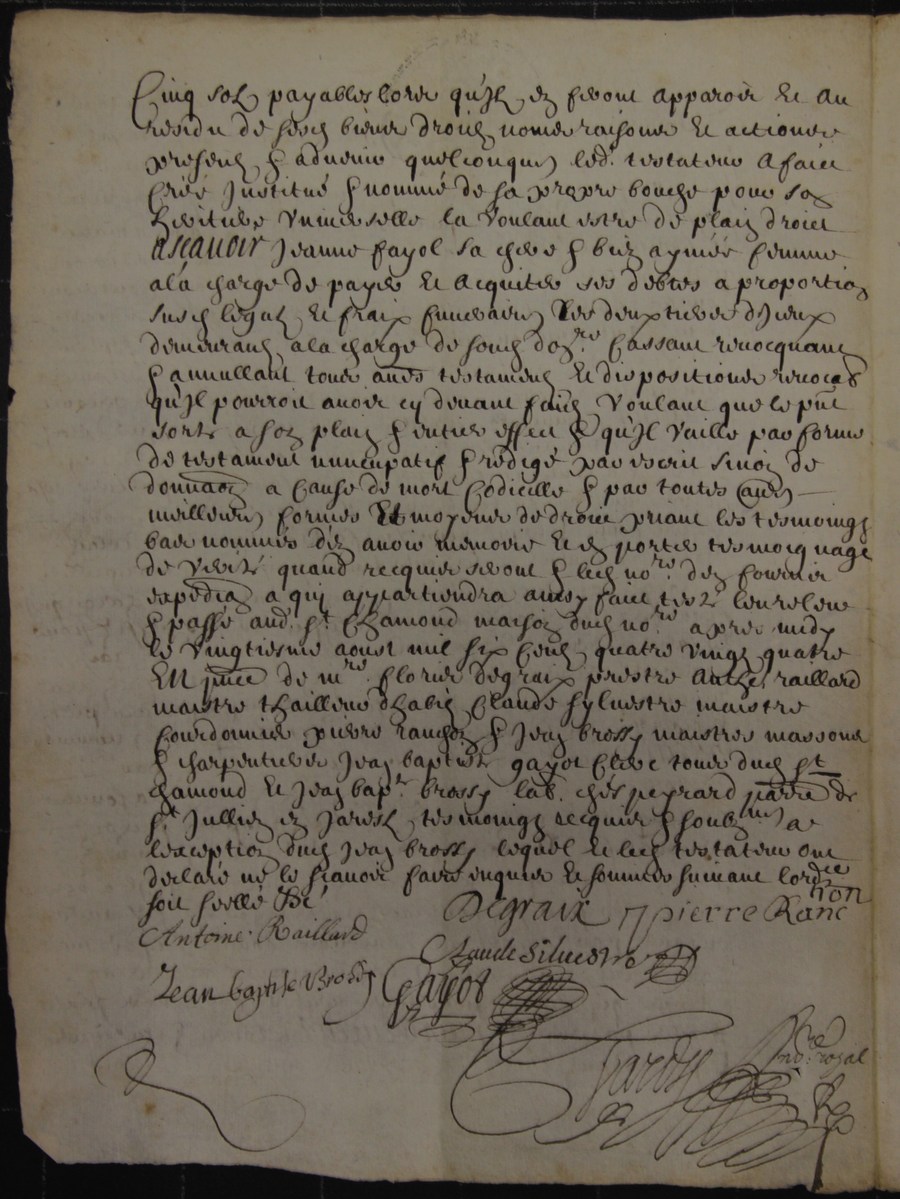 Cinq solz payables lors qu'Jlz en feront apparoir Et Au
residu de sesd biens droitz noms raisons Et actions
presentz & aduenir quelconques led. testateur A faict
Créé Jnstitué & nommé de sa propre bouche pour son
heritiere vniuerselle la voulant estre de plain droict
ascauoir Jeanne fayol sa chere & bien aymée femme
a la charge de payer Et Acquiter ses debtes a proportion
susd legatz, Et fraix funeraires Les deux tiers d'Jceux
demeurant a la charge de sond Cassant reuocquant
& annullant tous aues testamentz Et dispositions
qu'Jl pourroit auoir cy deuant faict Voulant que le pnt
sorte a son plain & entier effect & qu'Jl vaille par forme
de testament nuncupatif & rédigé par escrit sinon de
donnaon a Cause de mort Codicille & par toutes aues
meilleures formes Et moyens de droict priant les tesmoingz
bas nommés d'en auoir memoire Et en porter tesmoignage
de verité quand recquis seront & led nore. d'en fournir
expedion a qui appartiendra ainsy faict
& passé aud. st. Chamond maison dud nore apres midy
le vingtiesme aoust mil six centz quatre vingtz quatre
EN pnce de mre. floris degraix prestre Anthe. raillard
maistre thailleur d'habitz Claude syluestre maistre
Courdonnier pierre ranc & Jean brossy maistres massons
& charpentiers Jean baptiste gayot Clerc tous dud st
chamond Et Jean bapte. brossy lab. chés peyrard parre de
st Jullien en Jarestz, tesmoingz recquis & soubznes a
l'exception dud Jean brossy lequel Et led testateur ont
declaré ne le scauoir faire enquis Et sommés suiuant lordce
soit scellé
Degraix pierre Ranc
Antoine Raillard
Claude Siluestre
Jean baptiste Brossy Gayot
nore royal